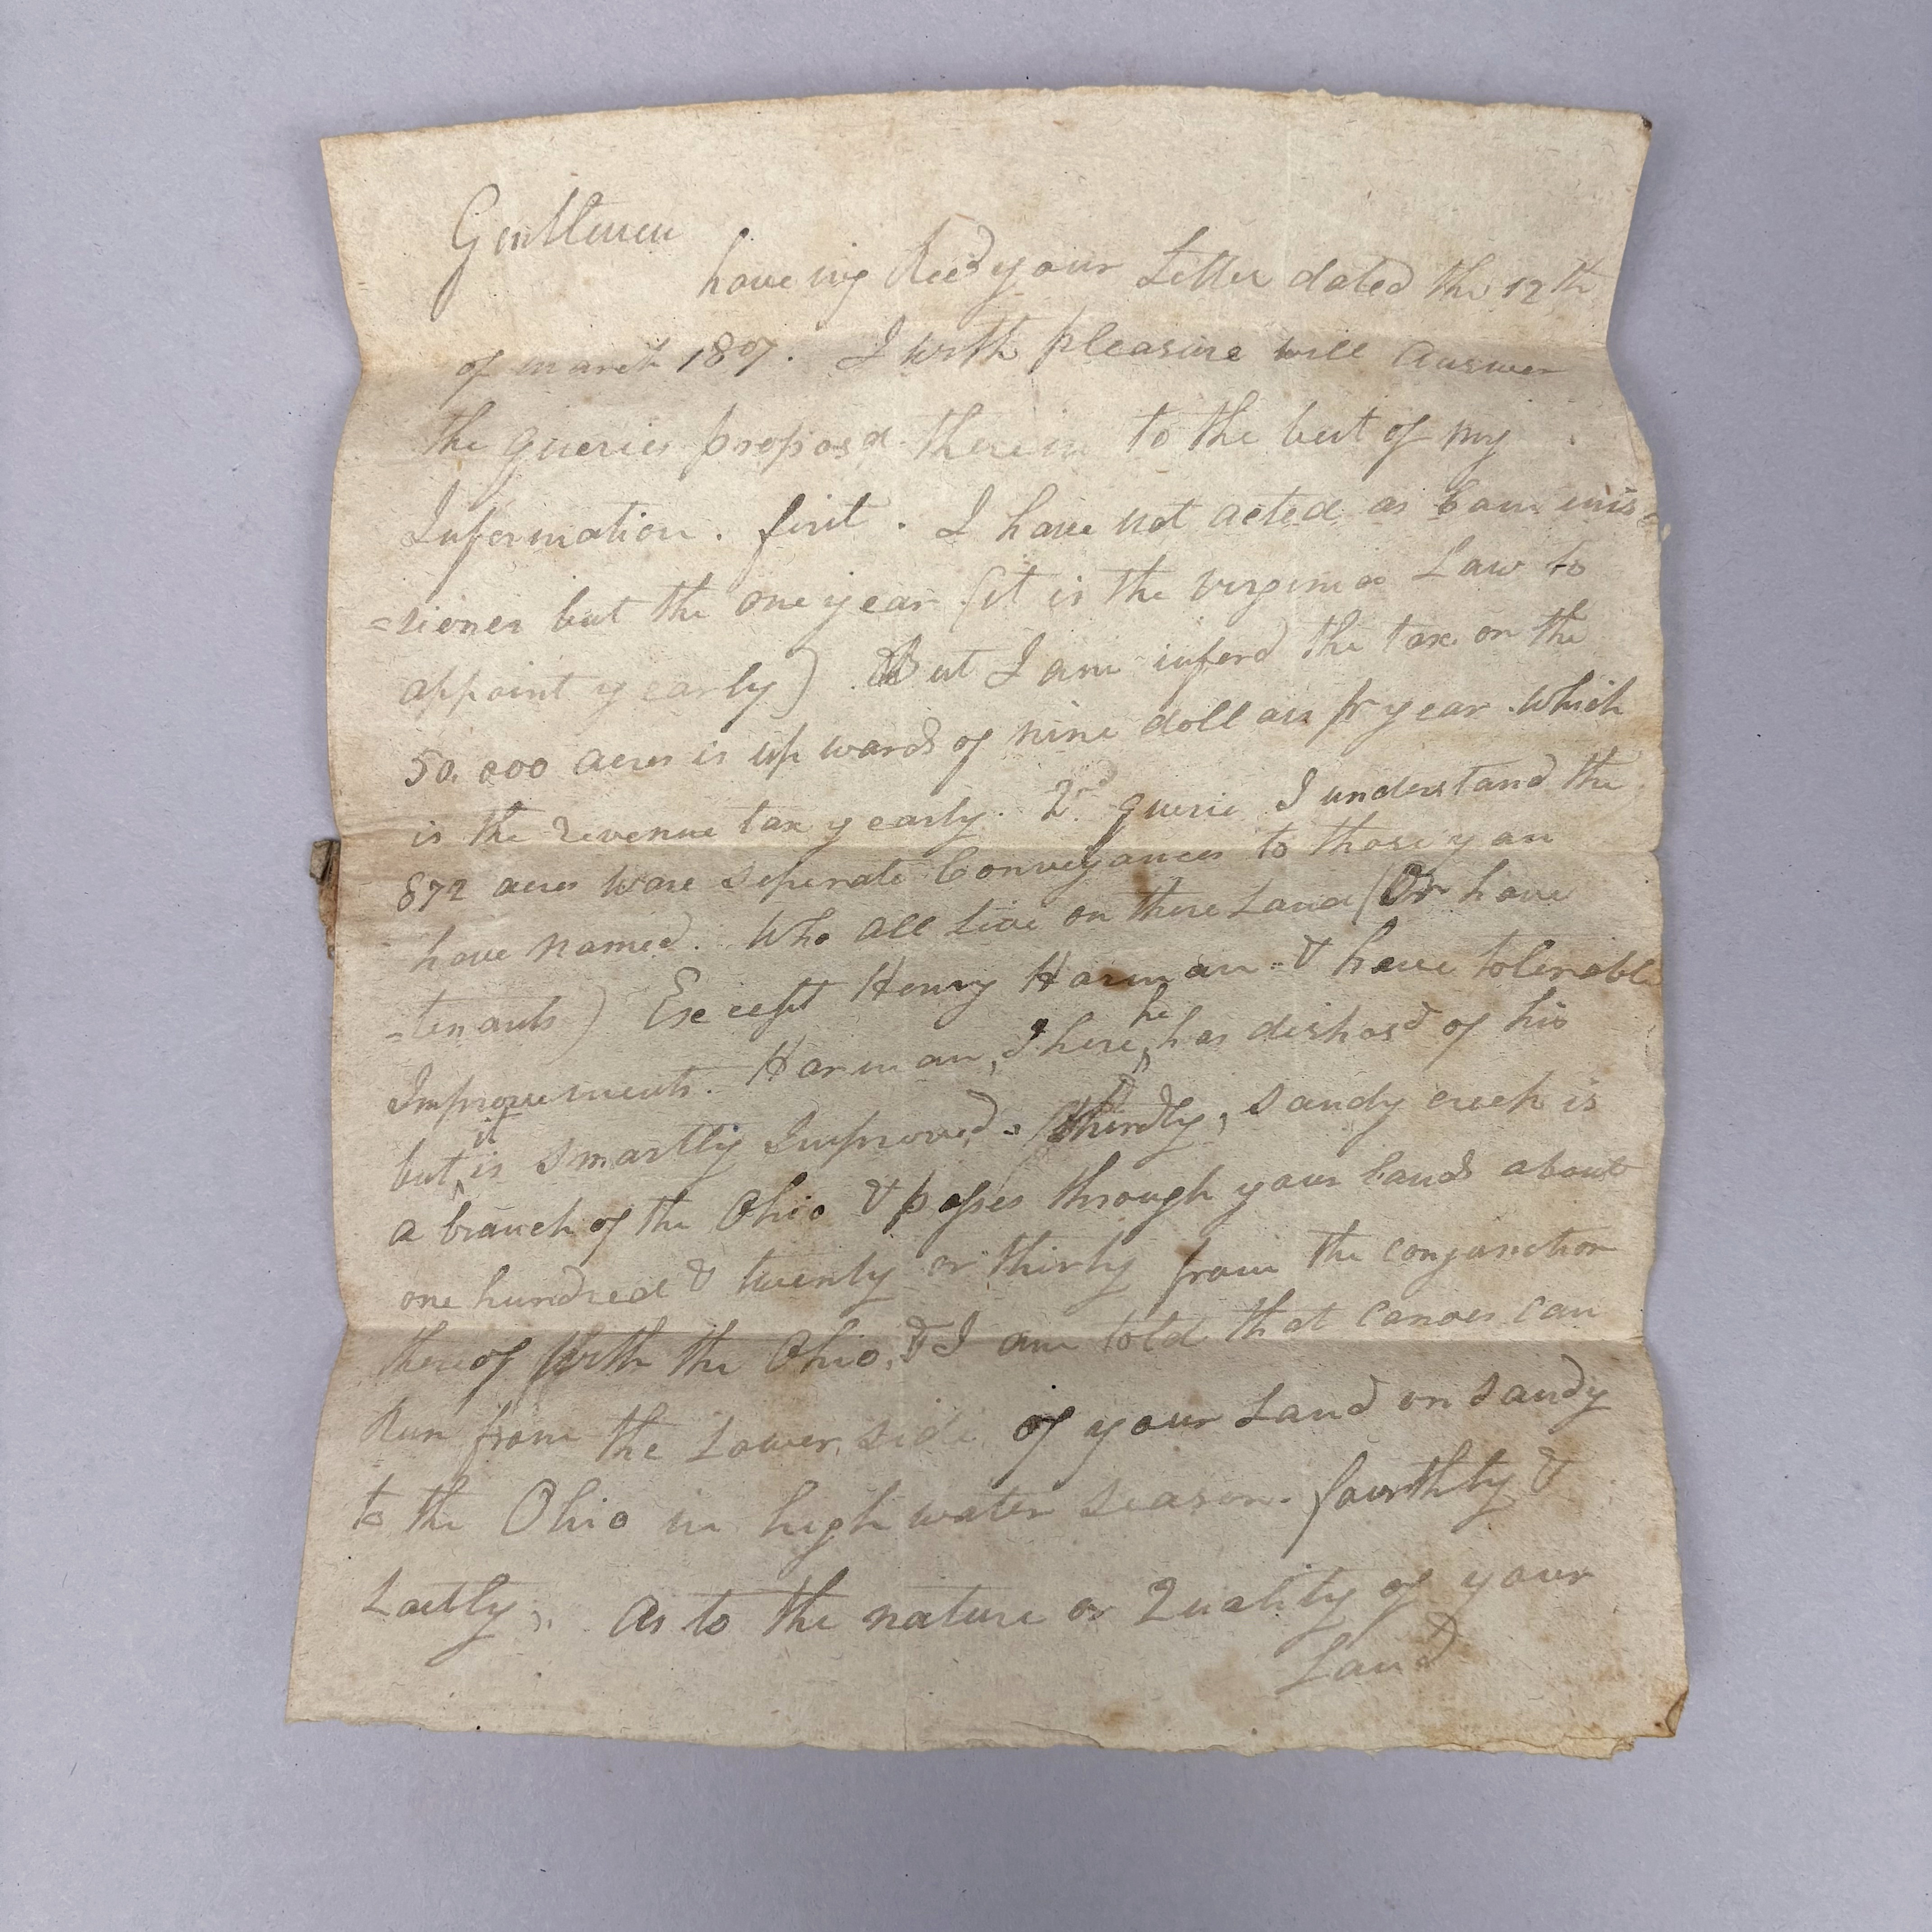 Gentlemen
haveing Recd your Letter dated the 12th
of march 1807. I with pleasure will Answer
the queries proposd therein to the best of my
Information. first. I have not acted as Commis=
=sioner but the one year (it is the virginia Law to
appoint yearly) But I am inford the tax on the
50,000 acres is upwards of nine dollars pr year. which
is the Revenue tax yearly. 2nd querie I understand the
872 acres ware seperate Conveyances to those you
have named. Who all live on there Land (Or have
=tenants) Except Henry Harman & have tolerable
Improvements. Harman, I here he has disposd of his
but it is smartly Improved. thirdly, Sandy creek is
a branch of the Ohio & passes through your lands about
one hundred & twenty or thirty from the conjunction
thereof With the Ohio, & I am told that canoes can
Run from the Lower side of your Land on Sandy
to the Ohio in high water season. fourthly &
Lastly, As to the nature or Quality of your
Land